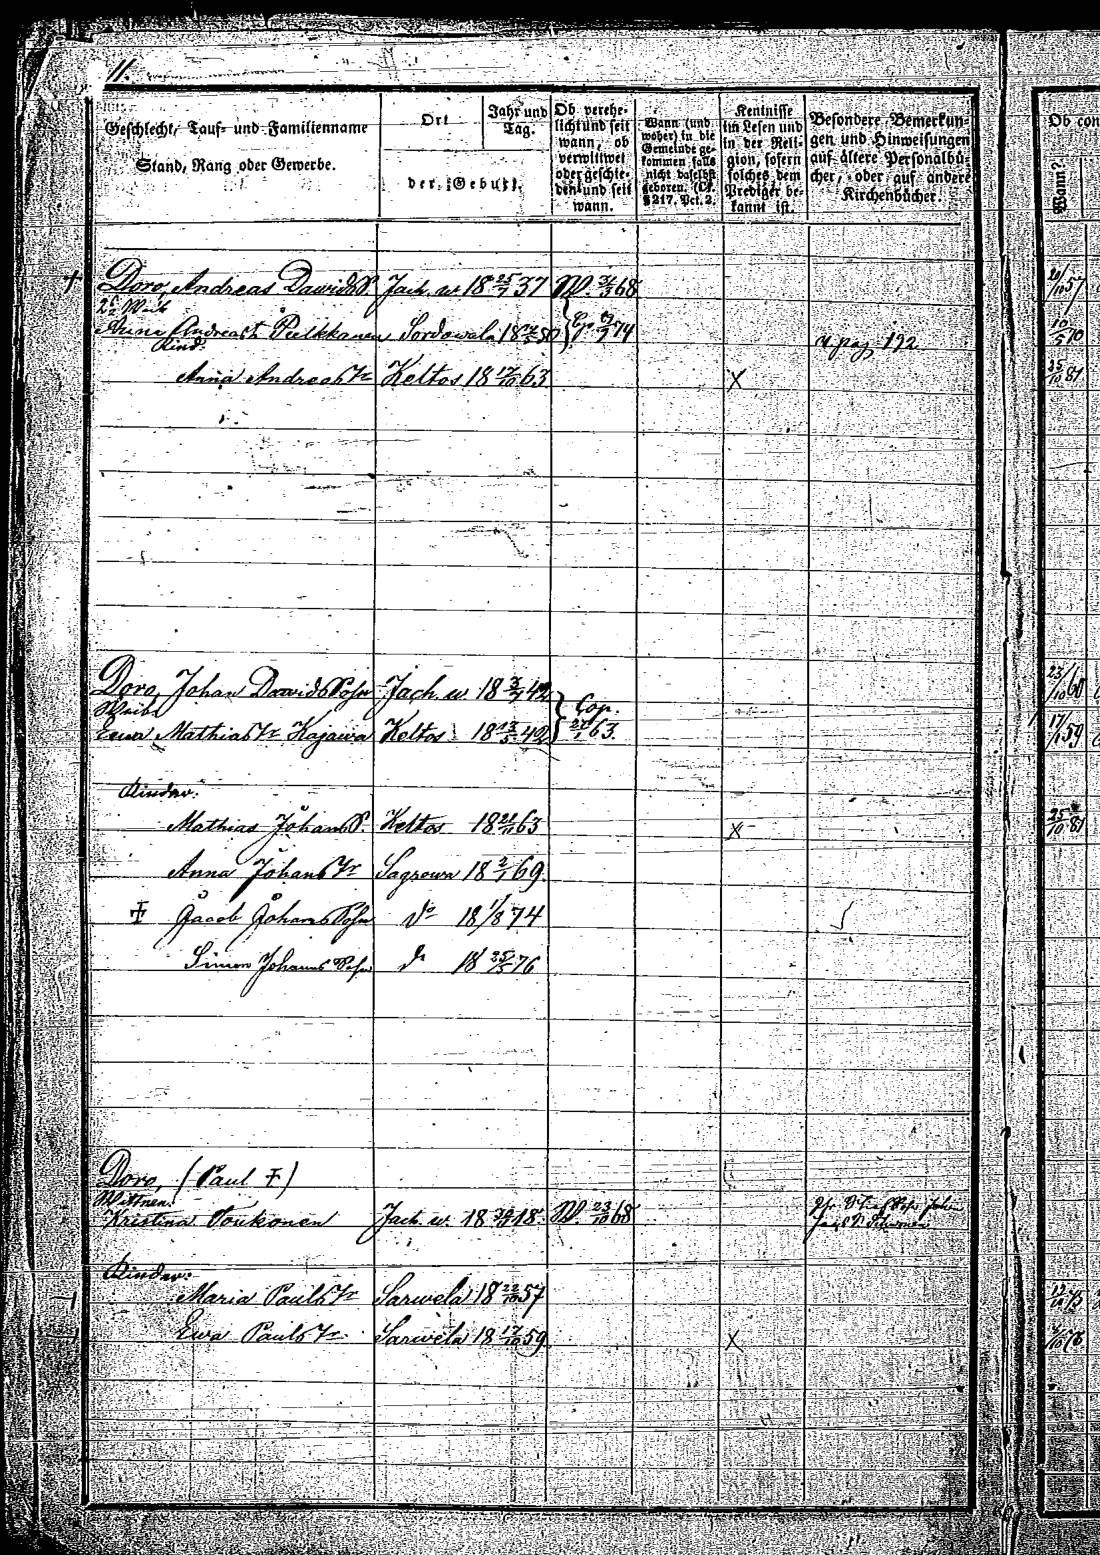 11.
Geschlecht, Tauf- und Familienname
Stand, Rang oder Gewerbe.
Ort
Jahr und
Tag.
der Geburt.
Ob verehe-
licht und seit
wann, ob
verwittwet
oder geschie-
den und seit
wann.
Wann (und
woher) in die
Gemeinde ge-
kommen falls
nicht daselbst
geboren. (Cf.
§ 217. Pct. 2.
Kentnisse
im Lesen und
in der Reli-
gion, sofern
solches dem
Prediger be-
kannt ist.
Besondere Bemerkun-
gen und Hinweisungen
auf ältere Personalbü-
cher, oder auf andere
Kirchenbücher.
Ob con
Wann?
+ Doro, Andreas Davids S. Jach. w. 18 25/7 37 W. 68
Weib
Anna Andreas Tr Pulkkanen Sordowala 18 50 74
pag 192
Kind
Anna Andreas Tr Keltos 18 17/10 63 X
25/10 81
Doro, Johan Davids Sohn Jach. w. 18 42
Weib
Ewa Mathias Tr Kajawa Keltos 18 13/5 42 Cop. 63.
17/1 59
Kinder:
Mathias Johans S. Keltos 18 21/11 63 X
25/10 81
Anna Johans Tr Sagrowa 18 2/1 69.
‡ Jacob Johans Sohn do 18 1/8 74
Simon Johans Sohn do 18 25/5 76
Doro, (Paul ‡)
Wittwe:
Kristina Toukonen Jach. w. 18 18. W. 23/10 68
Kinder:
Maria Pauls Tr Sarwela 18 22/10 57
Ewa Pauls Tr Sarwela 18 17/10 59. X